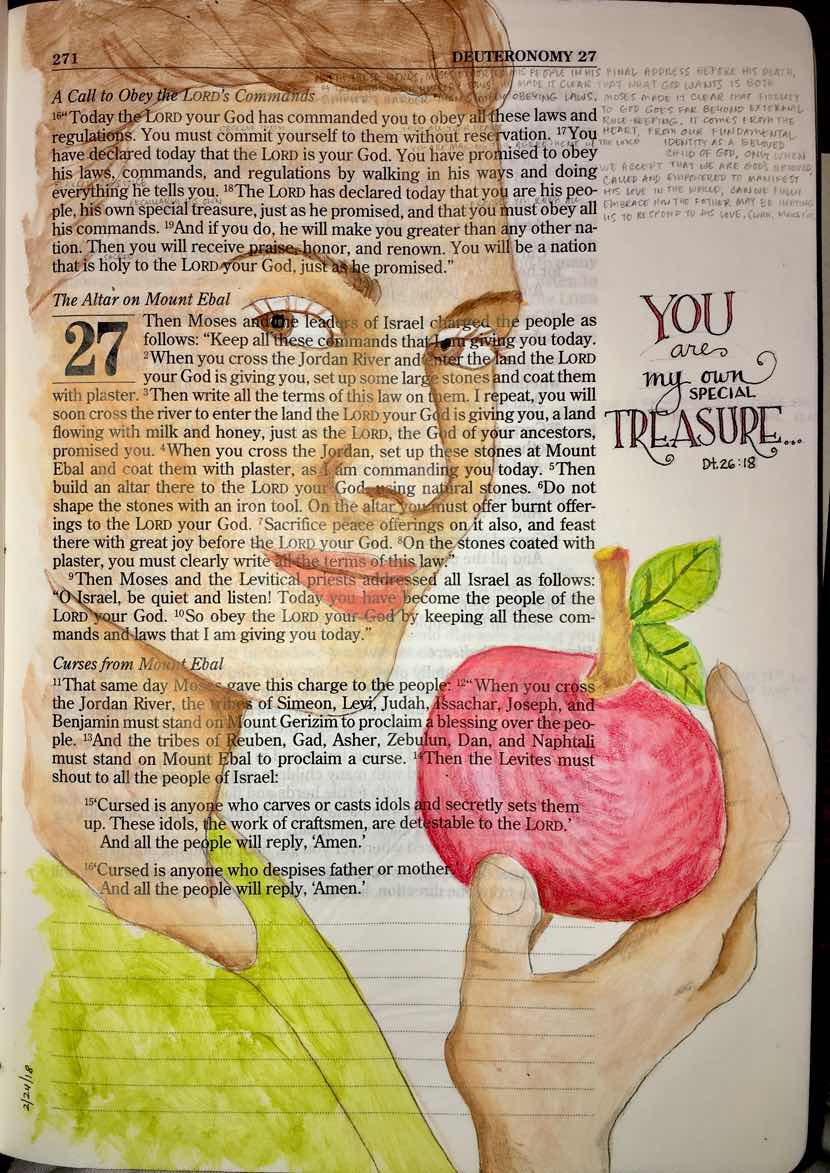 271
DEUTERONOMY 27
HIS PEOPLE IN HIS FINAL ADDRESS BEFORE HIS DEATH,
MADE IT CLEAR THAT WHAT GOD WANTS IS BOTH
OBEYING LAWS, MOSES MADE IT CLEAR THAT FIDELITY
TO GOD GOES FAR BEYOND EXTERNAL
RULE-KEEPING, IT COMES FROM THE
HEART, FROM OUR FUNDAMENTAL
IDENTITY AS A BELOVED
CHILD OF GOD, ONLY WHEN
WE ACCEPT THAT WE ARE GOD'S BELOVED,
CALLED AND EMPOWERED TO MANIFEST
HIS LOVE IN THE WORLD, CAN WE FULLY
EMBRACE HOW THE FATHER MAY BE INVITING
US TO RESPOND TO HIS LOVE,
A Call to Obey the LORD's Commands
16“Today the LORD your God has commanded you to obey all these laws and
regulations. You must commit yourself to them without reservation. 17You
have declared today that the LORD is your God. You have promised to obey
his laws, commands, and regulations by walking in his ways and doing
everything he tells you. 18The LORD has declared today that you are his peo-
ple, his own special treasure, just as he promised, and that you must obey all
his commands. 19And if you do, he will make you greater than any other na-
tion. Then you will receive praise, honor, and renown. You will be a nation
that is holy to the LORD your God, just as he promised.”
The Altar on Mount Ebal
27 Then Moses and the leaders of Israel charged the people as
follows: “Keep all these commands that I am giving you today.
2When you cross the Jordan River and enter the land the LORD
your God is giving you, set up some large stones and coat them
with plaster. 3Then write all the terms of this law on them. I repeat, you will
soon cross the river to enter the land the LORD your God is giving you, a land
flowing with milk and honey, just as the LORD, the God of your ancestors,
promised you. 4When you cross the Jordan, set up these stones at Mount
Ebal and coat them with plaster, as I am commanding you today. 5Then
build an altar there to the LORD your God, using natural stones. 6Do not
shape the stones with an iron tool. On the altar you must offer burnt offer-
ings to the LORD your God. 7Sacrifice peace offerings on it also, and feast
there with great joy before the LORD your God. 8On the stones coated with
plaster, you must clearly write all the terms of this law.”
9Then Moses and the Levitical priests addressed all Israel as follows:
“O Israel, be quiet and listen! Today you have become the people of the
LORD your God. 10So obey the LORD your God by keeping all these com-
mands and laws that I am giving you today.”
Curses from Mount Ebal
11That same day Moses gave this charge to the people: 12“When you cross
the Jordan River, the tribes of Simeon, Levi, Judah, Issachar, Joseph, and
Benjamin must stand on Mount Gerizim to proclaim a blessing over the peo-
ple. 13And the tribes of Reuben, Gad, Asher, Zebulun, Dan, and Naphtali
must stand on Mount Ebal to proclaim a curse. 14Then the Levites must
shout to all the people of Israel:
15‘Cursed is anyone who carves or casts idols and secretly sets them
up. These idols, the work of craftsmen, are detestable to the LORD.’
And all the people will reply, ‘Amen.’
16‘Cursed is anyone who despises father or mother
And all the people will reply, ‘Amen.’
YOU
are
my own
SPECIAL
TREASURE...
Dt. 26:18
2/24/18